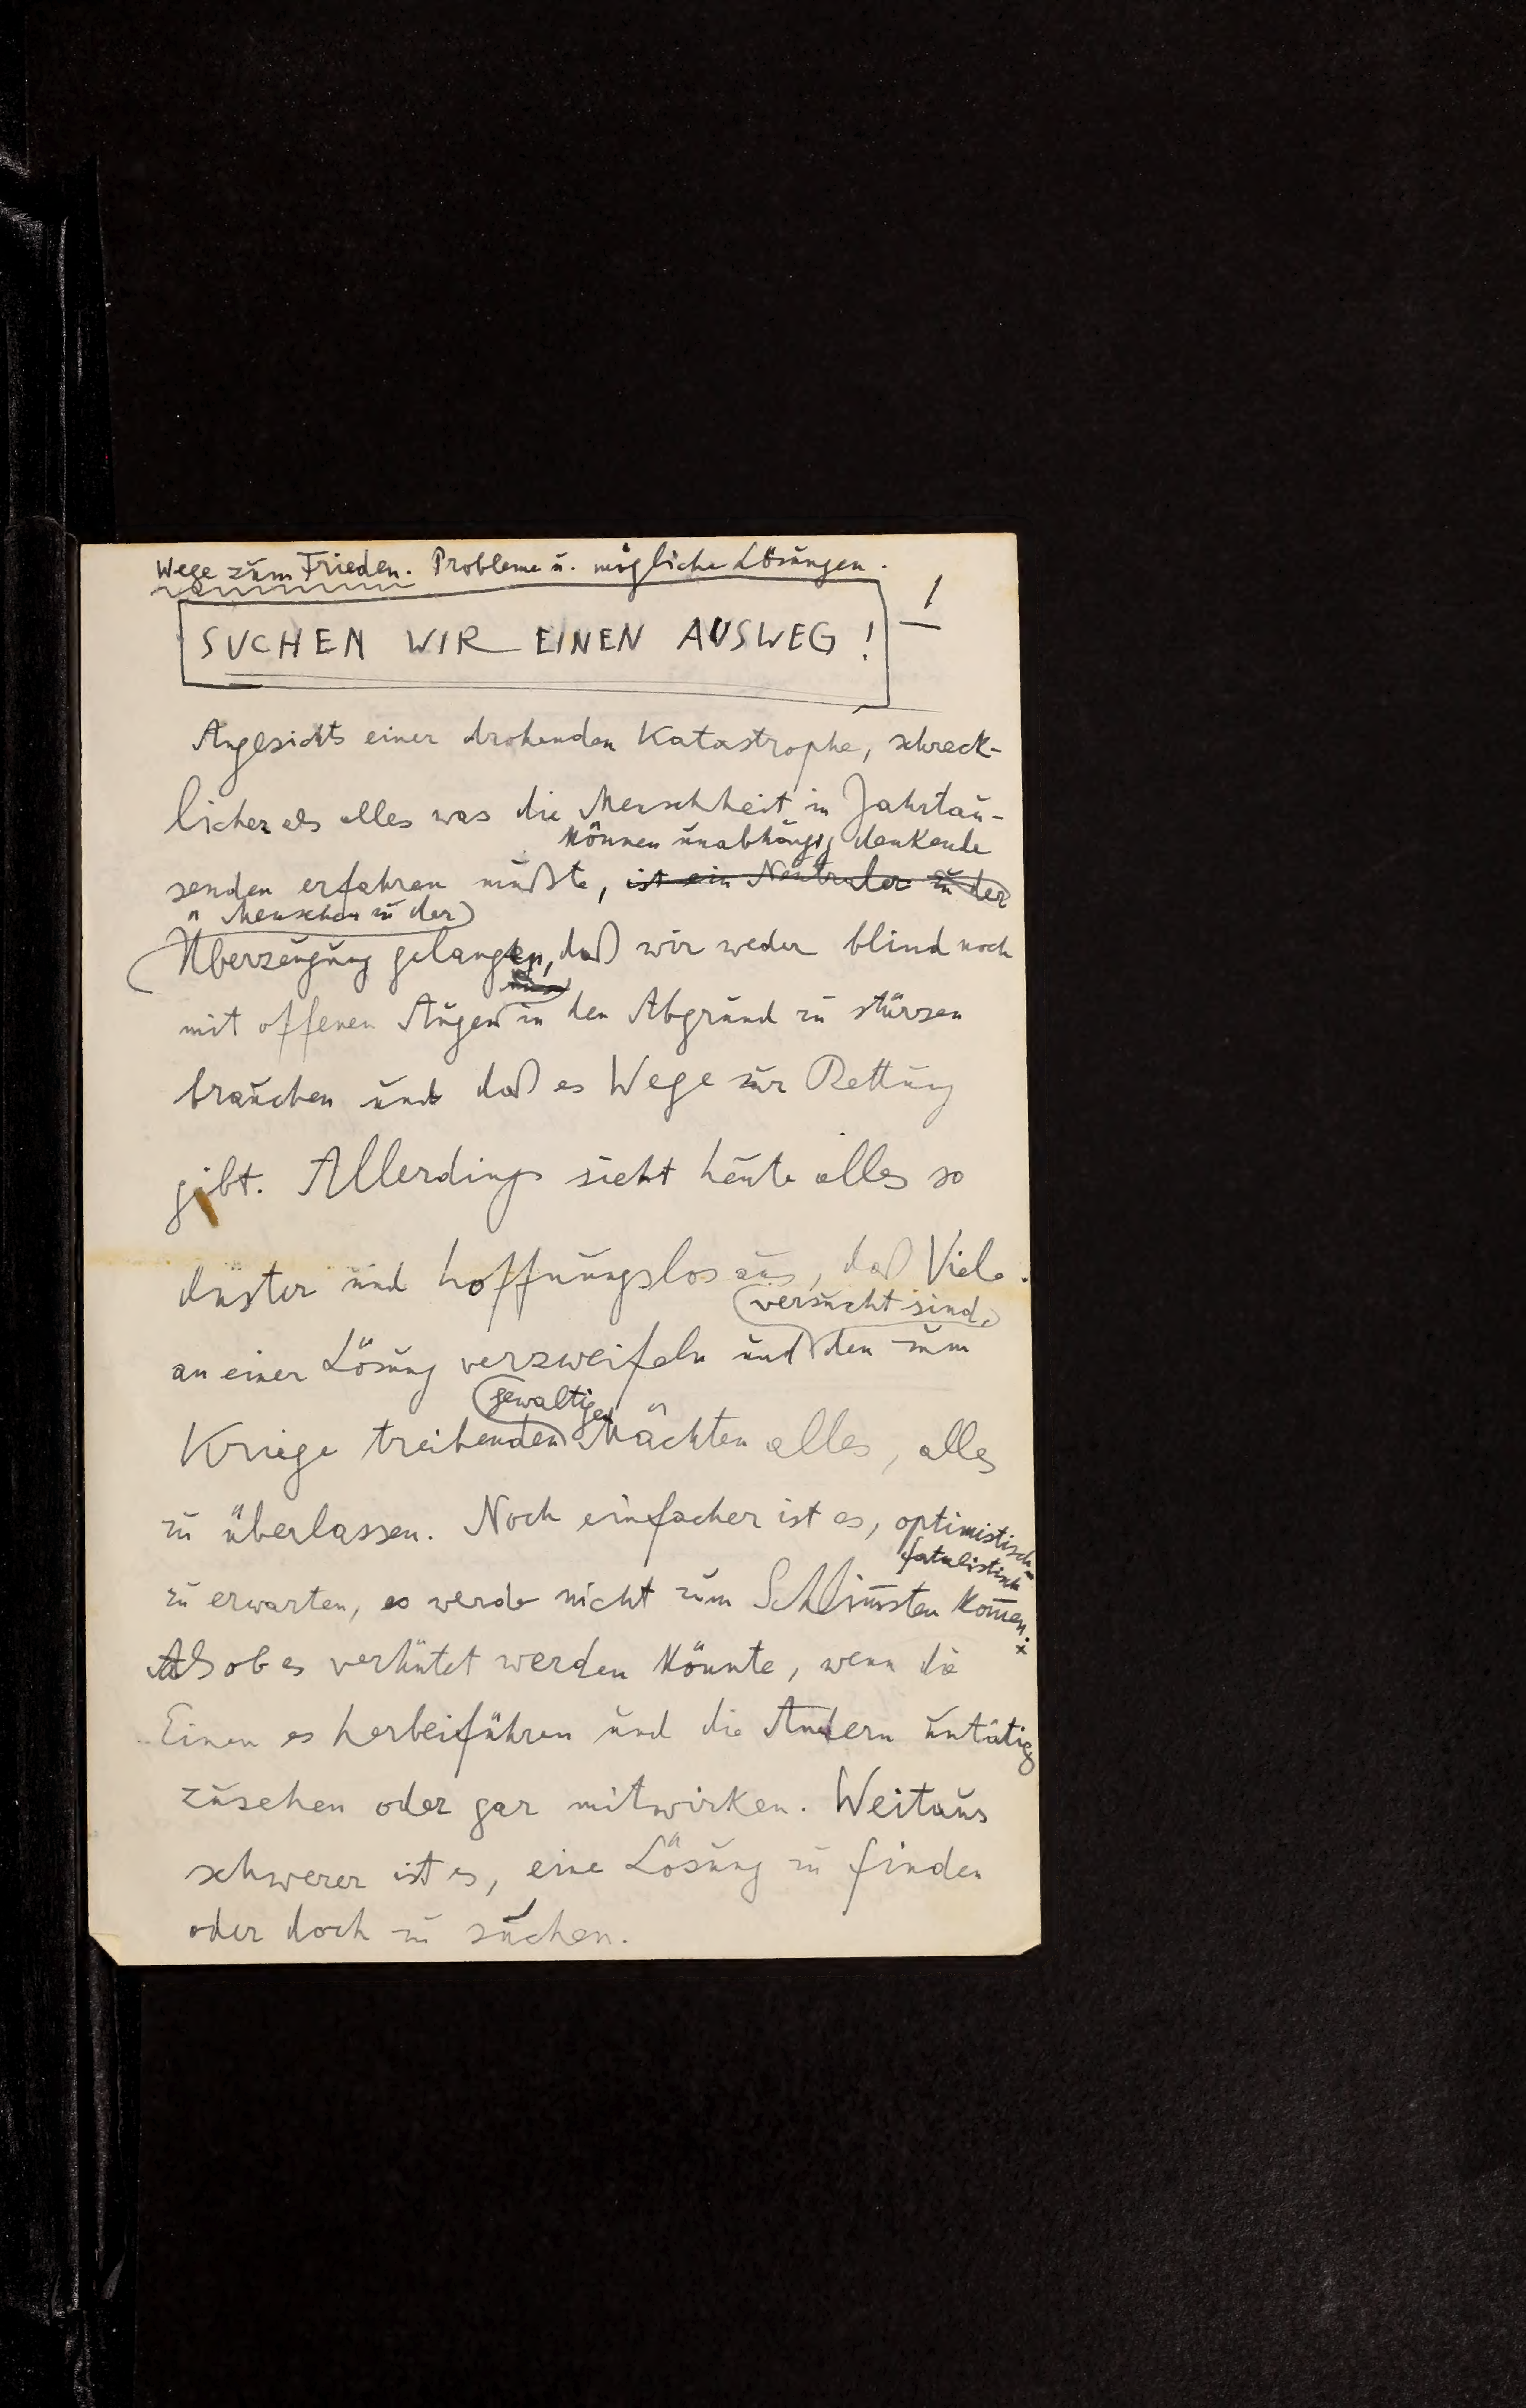 Wege zum Frieden. Probleme u. mögliche Lösungen.
1
SUCHEN WIR EINEN AUSWEG!
Angesichts einer drohenden Katastrophe, schreck-
licher als alles was die Menschheit in Jahrtau-
können unabhängig denkende
senden erfahren mußte, ist ein Neutraler zu der
Menschen zu der
Überzeugung gelangen, daß wir weder blind noch
mit offenen Augen in den Abgrund zu stürzen
brauchen und daß es Wege zur Rettung
gibt. Allerdings sieht heute alles so
düster und hoffnungslos aus, daß Viele
versucht sind
an einer Lösung verzweifeln und den zum
gewaltigen
Kriege treibenden Mächten alles, alles
zu überlassen. Noch einfacher ist es, optimistisch-
fatalistisch
zu erwarten, es werde nicht zum Schlim̅sten kom̅en.
x
Als ob es verhütet werden könnte, wenn die
Einen es herbeiführen und die Andern untätig
zusehen oder gar mitwirken. Weitaus
schwerer ist es, eine Lösung zu finden
oder doch zu suchen.